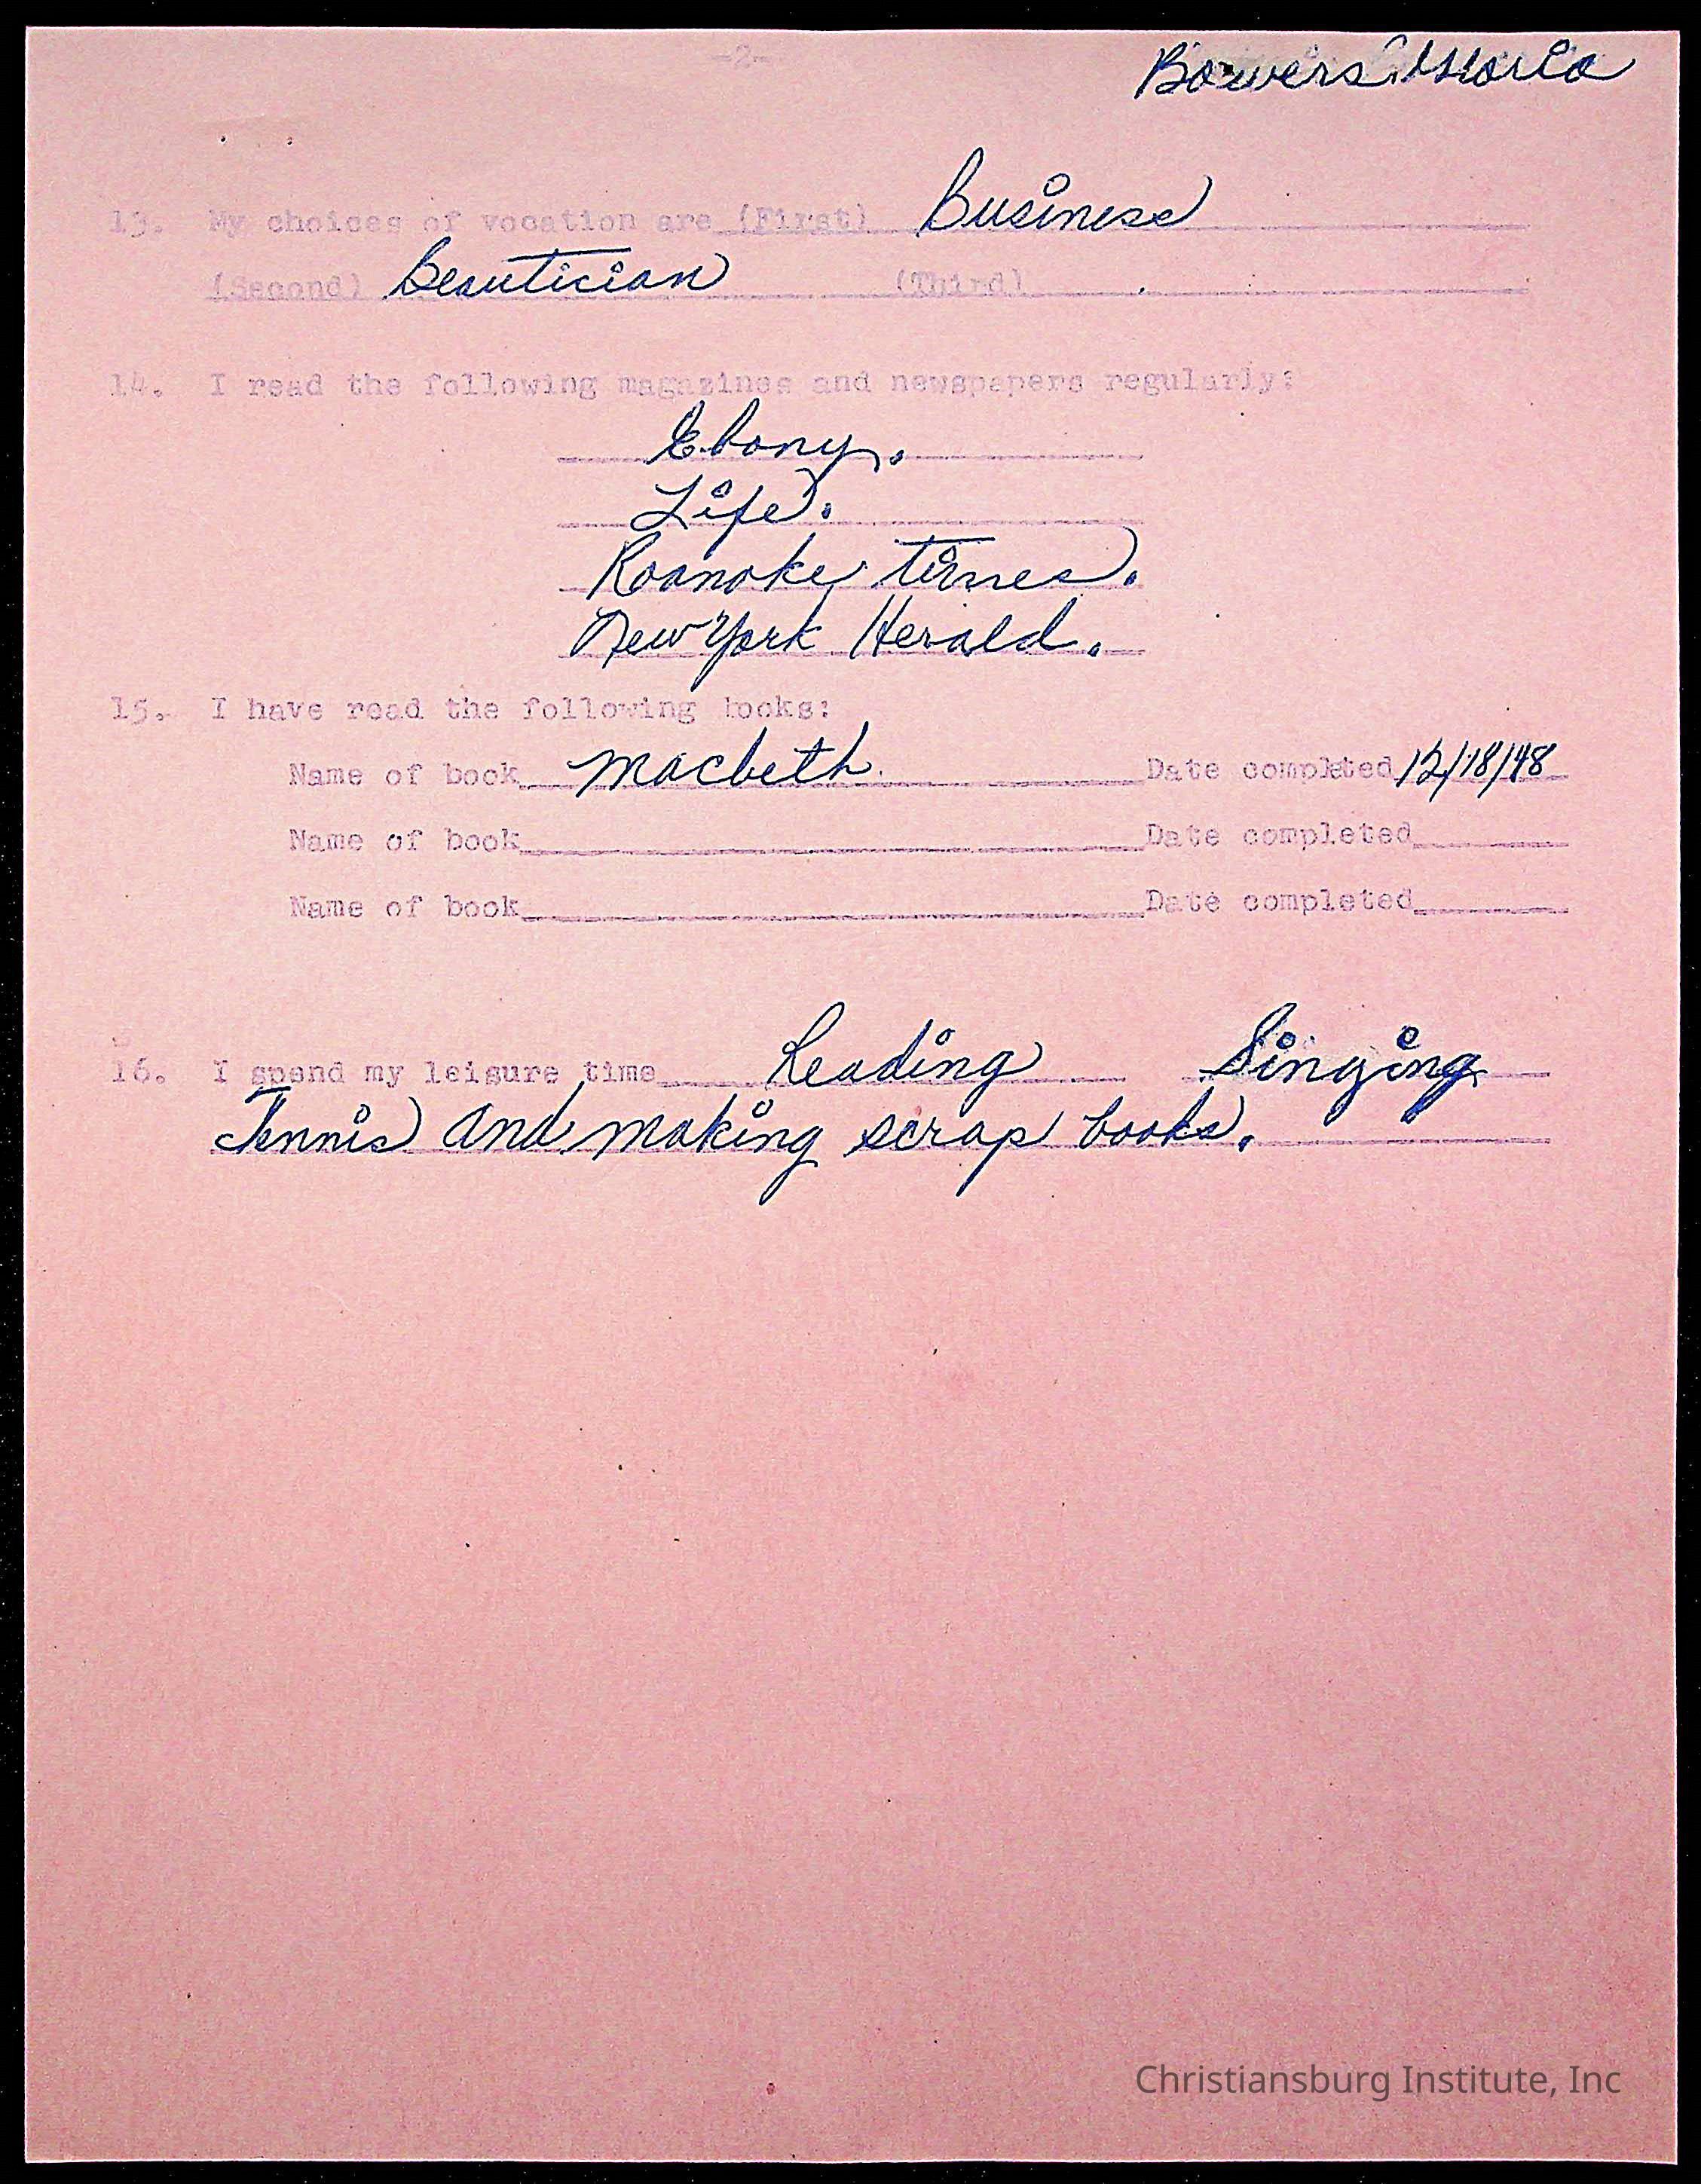 -2-
Bowers Gloria
13. My choices of vocation are (First) Business
(Second) Beautician (Third)
14. I read the following magazines and newspapers regularly:
Ebony.
Life.
Roanoke times.
New York Herald.
15. I have read the following books:
Name of book macbeth. Date completed 12/18/48
Name of book Date completed
Name of book Date completed
16. I spend my leisure time Reading Singing
Tennis and making scrap books.
Christiansburg Institute, Inc